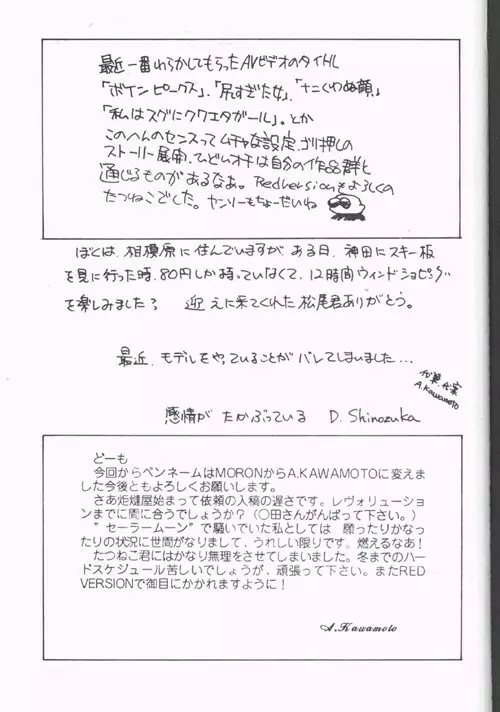 最近一番わらかしてもらったAVビデオのタイトル
「ボインピークス」、「尻すぎた女」、「ナニくわぬ顔」
「私はスグにクワエタガール」。とか
このへんのセンスってムチャな設定、ゴリ押しの
ストーリー展開、ひどいオチは自分の作品群と
通じるものがあるなぁ。Redversionもよろしくの
たつねこでした。ヤンソーもちょーだいね
ぼくは、相模原に住んでいますが ある日、神田にスキー板
を見に行った時、80円しか持っていなくて、12時間ウィンドショッピング
を楽しみました? 迎えに来てくれた松尾君ありがとう。
最近、モデルをやっていることがバレてしまいました…
代筆、代家
A.Kawamoto
感情がたかぶっている D. Shinozuka
どーも
今回からペンネームはMORONからA.KAWAMOTOに変えま
した今後ともよろしくお願いします。
さあ炬燵屋始まって依頼の入稿の遅さです。レヴォリューショ
ンまでに間に合うでしょうか?(〇田さんがんばって下さい。)
"セーラームーン"で騒いでいた私としては 願ったりかなっ
たりの状況に世間がなりまして、うれしい限りです。燃えるなあ!
たつねこ君にはかなり無理をさせてしまいました。冬までのハー
ドスケジュール苦しいでしょうが、頑張って下さい。またRED
VERSIONで御目にかかれますように!
A.Kawamoto